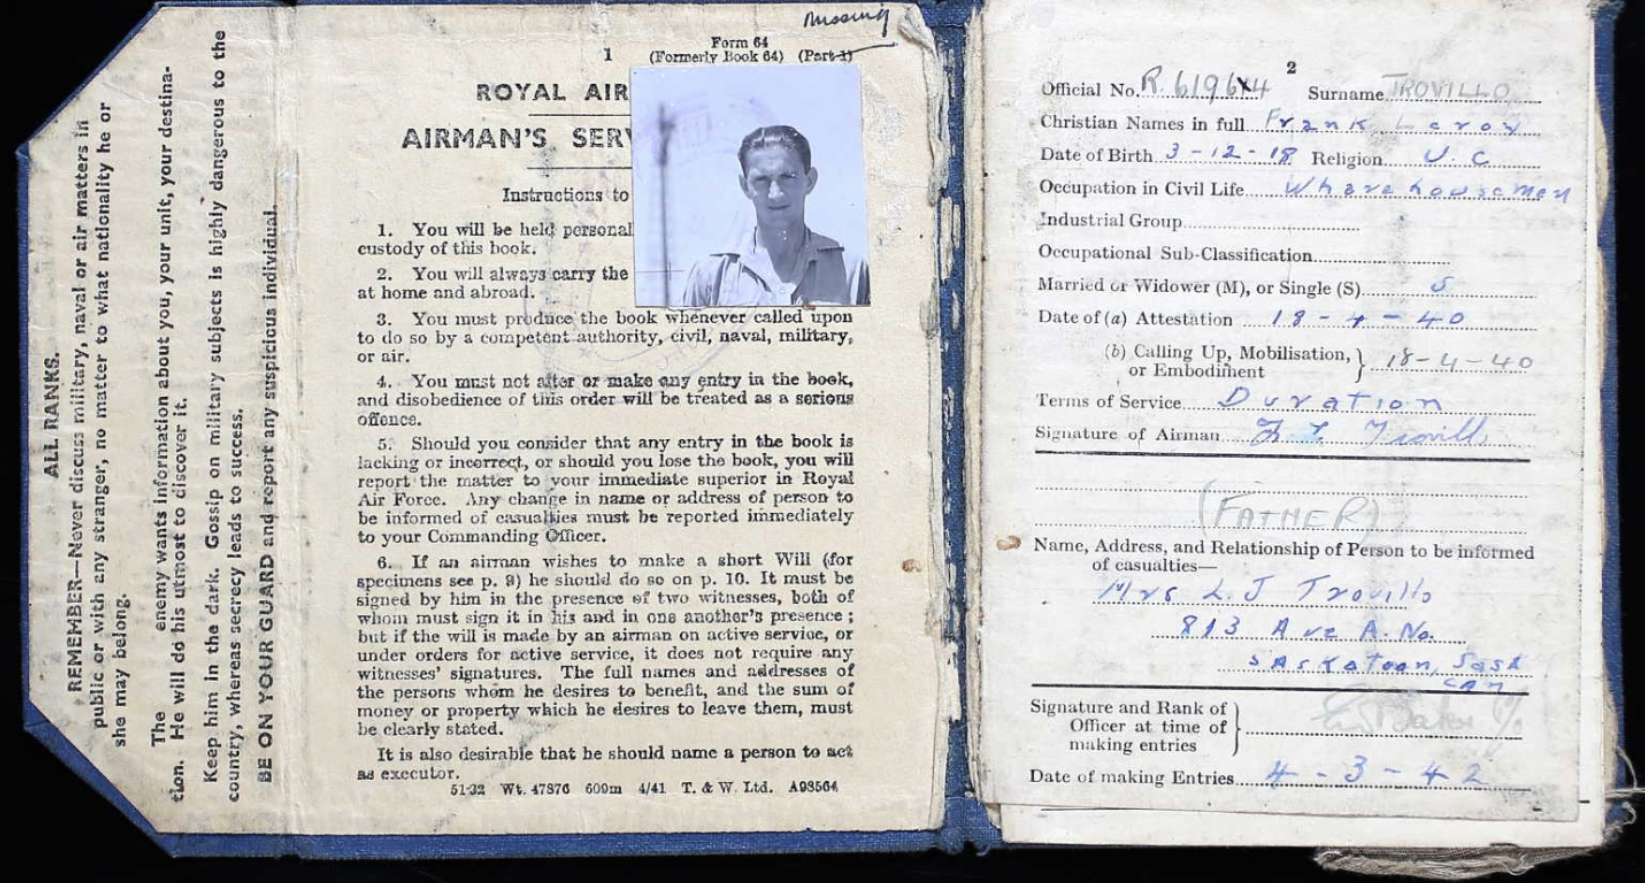 ALL RANKS.
REMEMBER—Never discuss military, naval or air matters in
public or with any stranger, no matter to what nationality he or
she may belong.
The enemy wants information about you, your unit, your destina-
tion. He will do his utmost to discover it.
Keep him in the dark. Gossip on military subjects is highly dangerous to the
country, whereas secrecy leads to success.
BE ON YOUR GUARD and report any suspicious individual.
Missing
1
Form 64
(Formerly Book 64) (Part 1)
ROYAL AIR
AIRMAN'S SERV
Instructions to
1. You will be held personal
custody of this book.
2. You will always carry the
at home and abroad.
3. You must produce the book whenever called upon
to do so by a competent authority, civil, naval, military,
or air.
4. You must not alter or make any entry in the book,
and disobedience of this order will be treated as a serious
offence.
5. Should you consider that any entry in the book is
lacking or incorrect, or should you lose the book, you will
report the matter to your immediate superior in Royal
Air Force. Any change in name or address of person to
be informed of casualties must be reported immediately
to your Commanding Officer.
6. If an airman wishes to make a short Will (for
specimens see p. 9) he should do so on p. 10. It must be
signed by him in the presence of two witnesses, both of
whom must sign it in his and in one another's presence ;
but if the will is made by an airman on active service, or
under orders for active service, it does not require any
witnesses' signatures. The full names and addresses of
the persons whom he desires to benefit, and the sum of
money or property which he desires to leave them, must
be clearly stated.
It is also desirable that he should name a person to act
as executor.
51-32 Wt. 47876 600m 4/41 T. & W. Ltd. A98564
2
Official No. Surname TROVILLO
Christian Names in full Frank Leroy
Date of Birth 3-12-18 Religion U.C
Occupation in Civil Life Wharehousemen
Industrial Group
Occupational Sub-Classification
Married or Widower (M), or Single (S) S
Date of (a) Attestation 18-4-40
(b) Calling Up, Mobilisation, } 18-4-40
or Embodiment
Terms of Service Duration
Signature of Airman F L Trovillo
(FATHER)
Name, Address, and Relationship of Person to be informed
of casualties—
Mrs L.J Trovillo
813 Ave A. No.
SASKatoon, Sask
CAN
Signature and Rank of }
Officer at time of
making entries
Date of making Entries 4-3-42